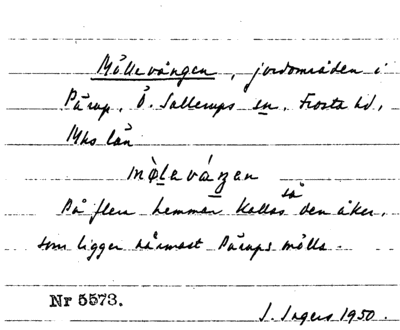 Möllevången, jordområden i
Pårup, Ö. Sallerups sn, Frosta hd,
Mhs län
mø̀leváŋen
På flera hemman kallas så den åker,
som ligger närmast Pårups mölla.
Nr 5573.
I. Ingers 1950.